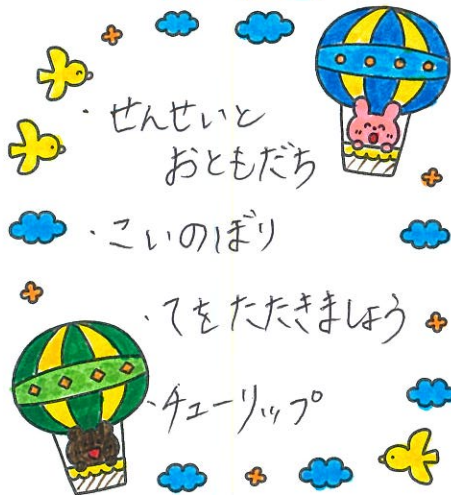 ・せんせいと
おともだち
・こいのぼり
・てをたたきましょう
・チューリップ